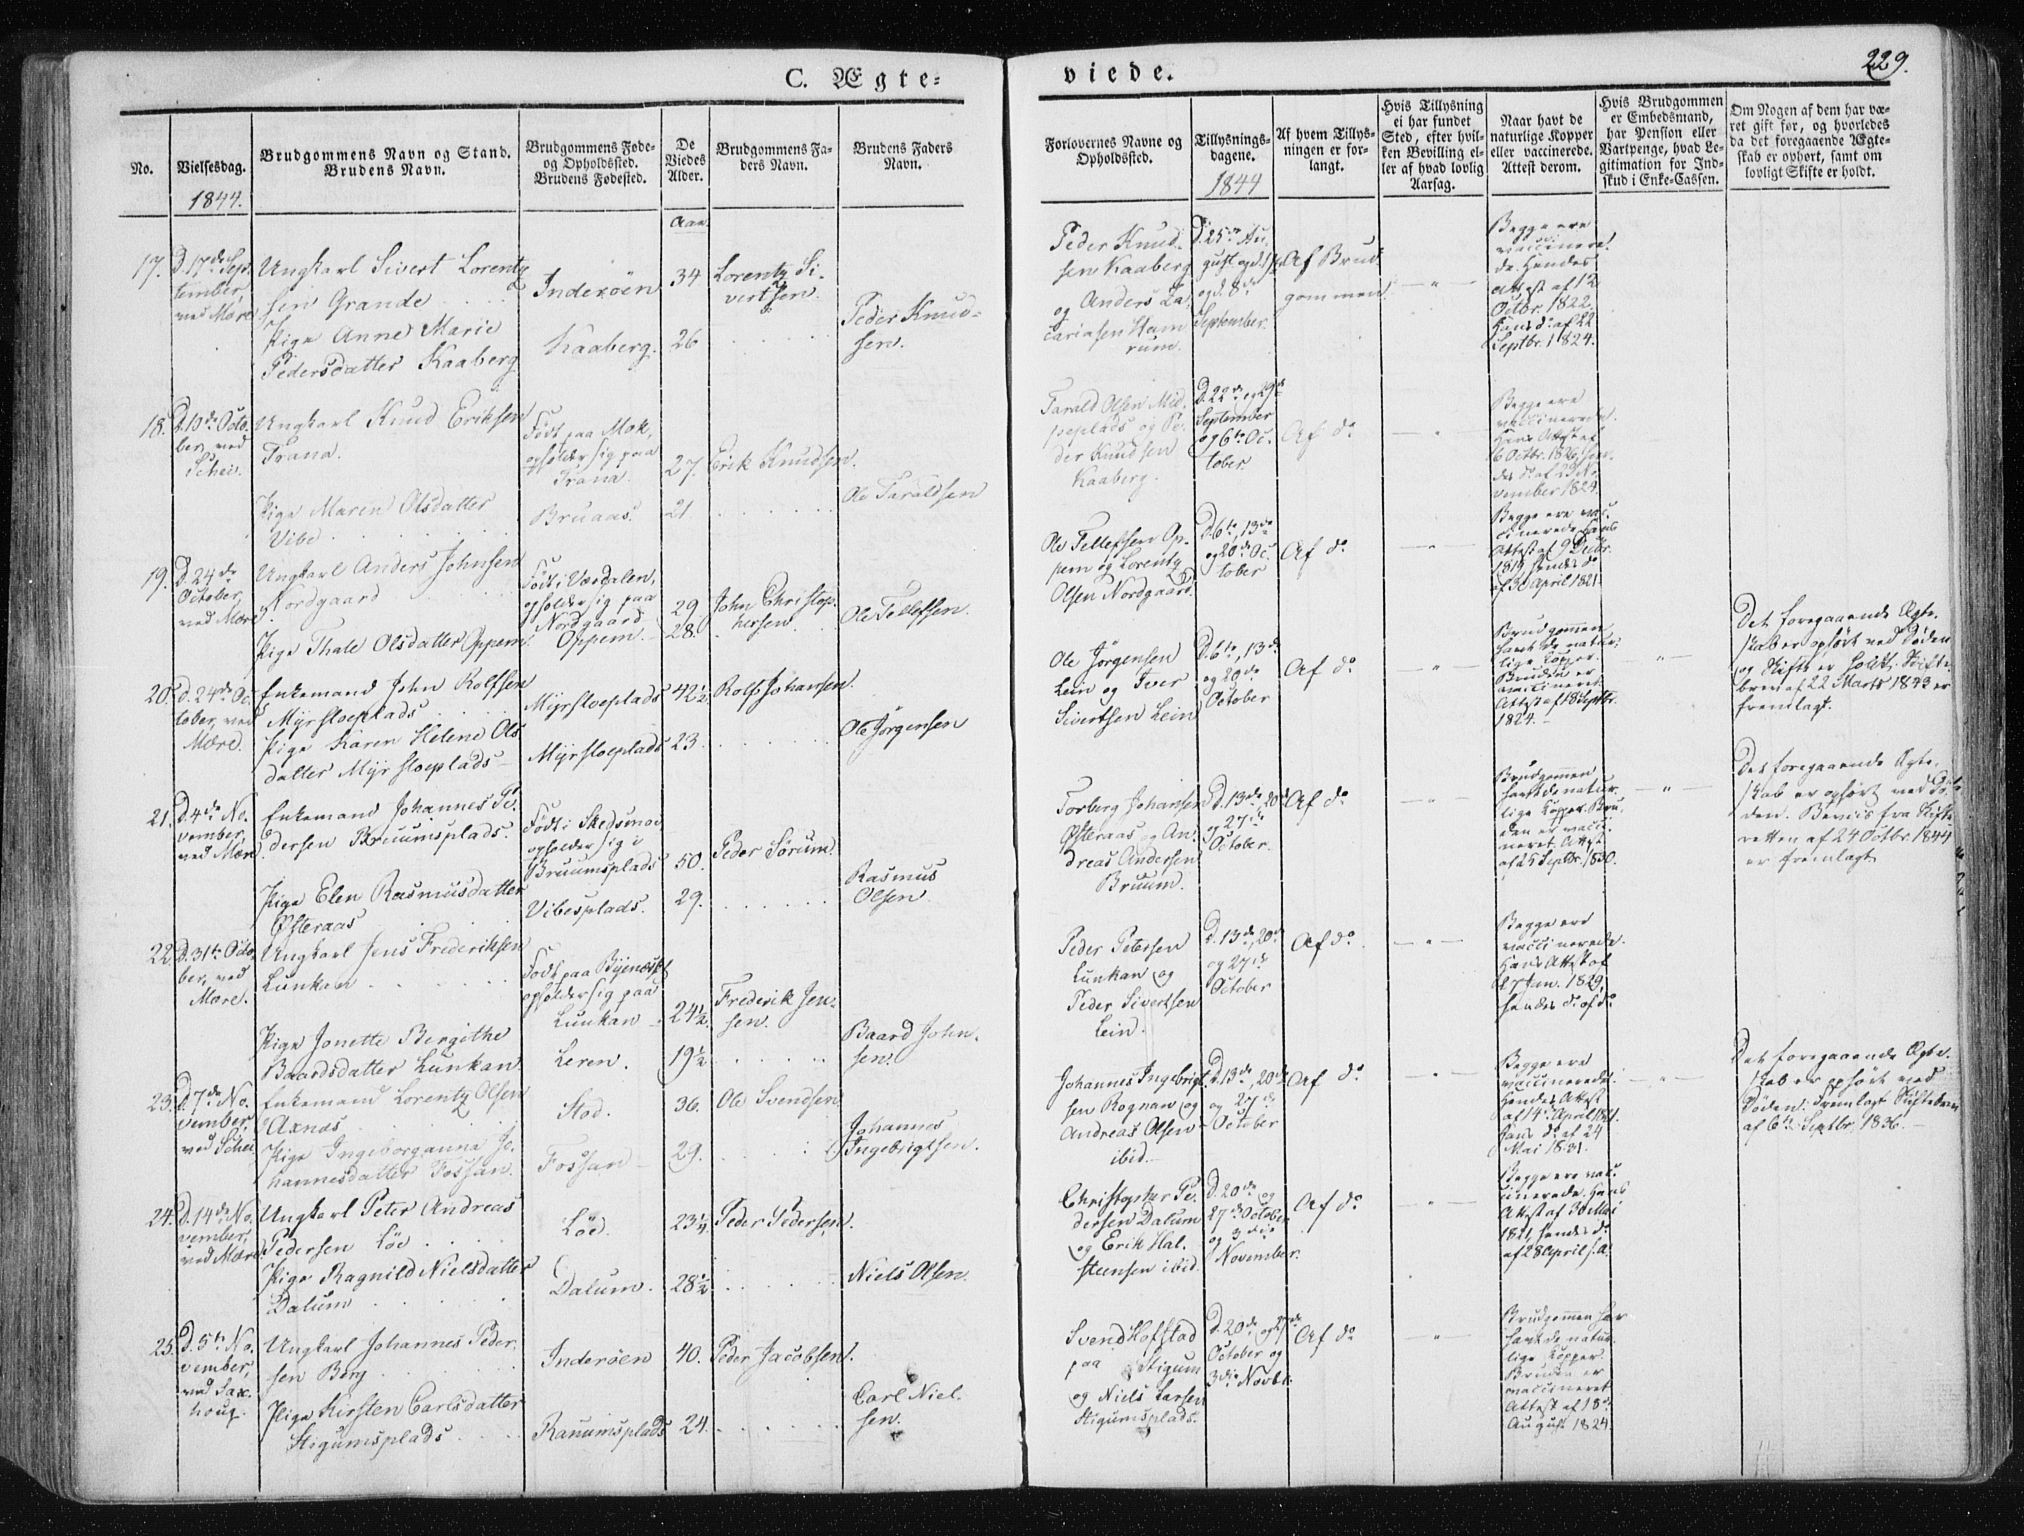 C. Ægte-
viede.
229.
No.
Vielsesdag.
1844.
Brudgommens Navn og Stand.
Brudens Navn.
Brudgommens Føde-
og Opholdssted.
Brudens Fødested.
De
Viedes
Alder.
Aar.
Brudgommens Fa-
ders Navn.
Brudens Faders
Navn.
Forlovernes Navne og
Opholdssted.
Tillysnings-
dagene.
1844
Af hvem Tillys-
ningen er for-
langt.
Hvis Tillysning
ei har fundet
Sted, efter hvil-
ken Bevilling el-
ler af hvad lovlig
Aarsag.
Naar havt de
naturlige Kopper
eller vaccinerede.
Attest derom.
Hvis Brudgommen
er Embedsmand,
har Pension eller
Vartpenge, hvad Le-
gitimation for Ind-
skud i Enke-Cassen.
Om Nogen af dem har væ-
ret gift før, og hvorledes
da det foregaaende Ægte-
skab er ophørt, samt om
lovligt Skifte er holdt.
17.
D. 17de Sep-
tember,
ved Mære
Ungkarl Sivert Lorentz
sen Grande
Pige Anne Marie
Pedersdatter Kaaberg
Inderøen
Kaaberg.
34
26
Lorentz Si-
vertsen.
Peder Knud-
sen.
Peder Knud-
sen Kaaberg
og Anders Za-
cariasen Ham
rum.
D. 25de Au-
gust og d. 1ste
og d. 8de
September.
Af Brud
gommen
Begge ere
vaccinere-
de. Hendes
Attest af 12
Octbr. 1822,
Hans do af 22
Septbr. 1824.
18.
D. 10de Octo-
ber, ved
Schei.
Ungkarl Knud Eriksen
Trana.
Pige Maren Olsdatter
Vibe
Født paa Mok,
opholder sig paa
Trana.
Bruaas.
27.
21.
Erik Knudsen.
Ole Taraldsen
Tarald Olsen Mid-
peplads og Pe-
der Knudsen
Kaaberg.
D. 22de og 29de
September
og 6te Oc-
tober
Af do
Begge ere
vaccinerede.
Hans Attest af
6 Octbr. 1826, hen-
des do af 23 No-
vember 1824.
19.
D. 24de
October,
ved Mære
Ungkarl Anders Johnsen
Nordgaard
Pige Thale Olsdatter Oppem
Født i Værdalen,
opholder sig paa
Nordgaard
Oppem
29
28.
John Christop-
hersen
Ole Tellefsen.
Ole Tellefsen Op-
pem og Lorentz
Olsen Nordgaard.
D. 6te, 13de
og 20de Oc-
tober
Af do
Begge ere vac-
cinerede. Hans
Attest af 9 Decbr.
1819 hendes do
af 30 April 1821.
20.
D. 24de Oc-
tober, ved
Mære.
Enkemand John Rolfsen
Myrsloeplads
Pige Karen Helene Ols
datter Myrsloeplads
Myrsloeplads
Myrsloeplads
42½
23.
Rolf Johansen.
Ole Jørgensen
Ole Jørgensen
Lein og Iver
Sivertsen Lein
D. 6te, 13de
og 20de
October
Af do
Brudgommen
havt de natur-
lige Kopper.
Bruden er
vaccineret.
Attest af 18 Septbr.
1824.
Det foregaaende Ægte-
skab er ophørt ved Døden
og Skifte er holdt; Skifte-
brev af 22 Marts 1843 er
fremlagt.
21.
D. 4de No-
vember,
ved Mære
Enkemand Johannes Pe-
dersen Bruumsplads.
Pige Elen Rasmusdatter
Østeraas
Født i Skedsmoe
opholder sig i
Bruumsplads
Vibesplads.
50.
29.
Peder Sørum.
Rasmus
Olsen.
Torberg Johansen
Østeraas og An-
dreas Andersen
Bruum.
D. 13de, 20de
og 27de
October.
Af do
Brudgommen
havt de natur-
lige Kopper. Bru-
den er vacci-
neret. Attest
af 25 Septbr. 1830.
Det foregaaende Ægte-
skab er ophørt ved Dø-
den. Beviis fra Skifte-
retten af 24 Octbr. 1844
er fremlagt
22.
D. 31te Octo-
ber, ved
Mære.
Ungkarl Jens Frederiksen
Lunkan
Pige Jonette Bergithe
Baardsdatter Lunkan
Født paa Byenesset
opholder sig paa
Lunkan
Leren.
24½.
19½
Frederik Jen-
sen.
Baard John-
sen.
Peder Petersen
Lunkan og
Peder Sivertsen
Lein.
D. 13de, 20de
og 27de
October
Af do
Begge ere
vaccinerede.
Hans Attest af
27 Jan. 1829,
hendes do af do
23.
D. 7de No-
vember,
ved Schei
Enkemand Lorentz Olsen
Axnæs
Pige Ingeborganna Jo-
hannesdatter Fossan.
Stod.
Fossan
36.
29.
Ole Svendsen
Johannes
Ingebrigtsen.
Johannes Ingebrigt-
sen Rognan og
Andreas Olsen
ibid.
D. 13de, 20de
og 27de
October
Af do
Begge ere
vaccinerede.
Hendes Attest
af 14 April 1821.
Hans do af 24
Mai 1831.
Det foregaaende Ægte-
skab er ophørt ved
Døden. Fremlagt Skiftebrev
af 6te Septbr. 1836.
24.
D. 14de No-
vember,
ved Mære
Ungkarl Peter Andreas
Pedersen Løe
Pige Ragnild Nielsdatter
Dalum
Løe.
Dalum.
23¼
28½
Peder Pedersen.
Niels Olsen.
Christopher Pe-
dersen Dalum
og Erik Hal-
steensen ibid.
D. 20de og
27de October
og 3die
November.
Af do
Begge ere vac-
cinerede. Hans
Attest af 30 Mai
1821, hendes do
af 28 April s. A.
25.
D. 5te No-
vember,
ved Sax-
houg.
Ungkarl Johannes Peder-
sen Berg
Pige Kirsten Carlsdatter
Stigumsplads
Inderøen
Ranumsplads
40.
24.
Peder Jacobsen.
Carl Niel-
sen.
Svend Hofstad
paa Stigum
og Niels Larsen
Stigumsplads.
D. 20de og 27de
October og
3die Novbr.
Af do
Brudgommen har
havt de natur-
lige Kopper.
Bruden er
vaccineret
Attest af 18de
August 1824.